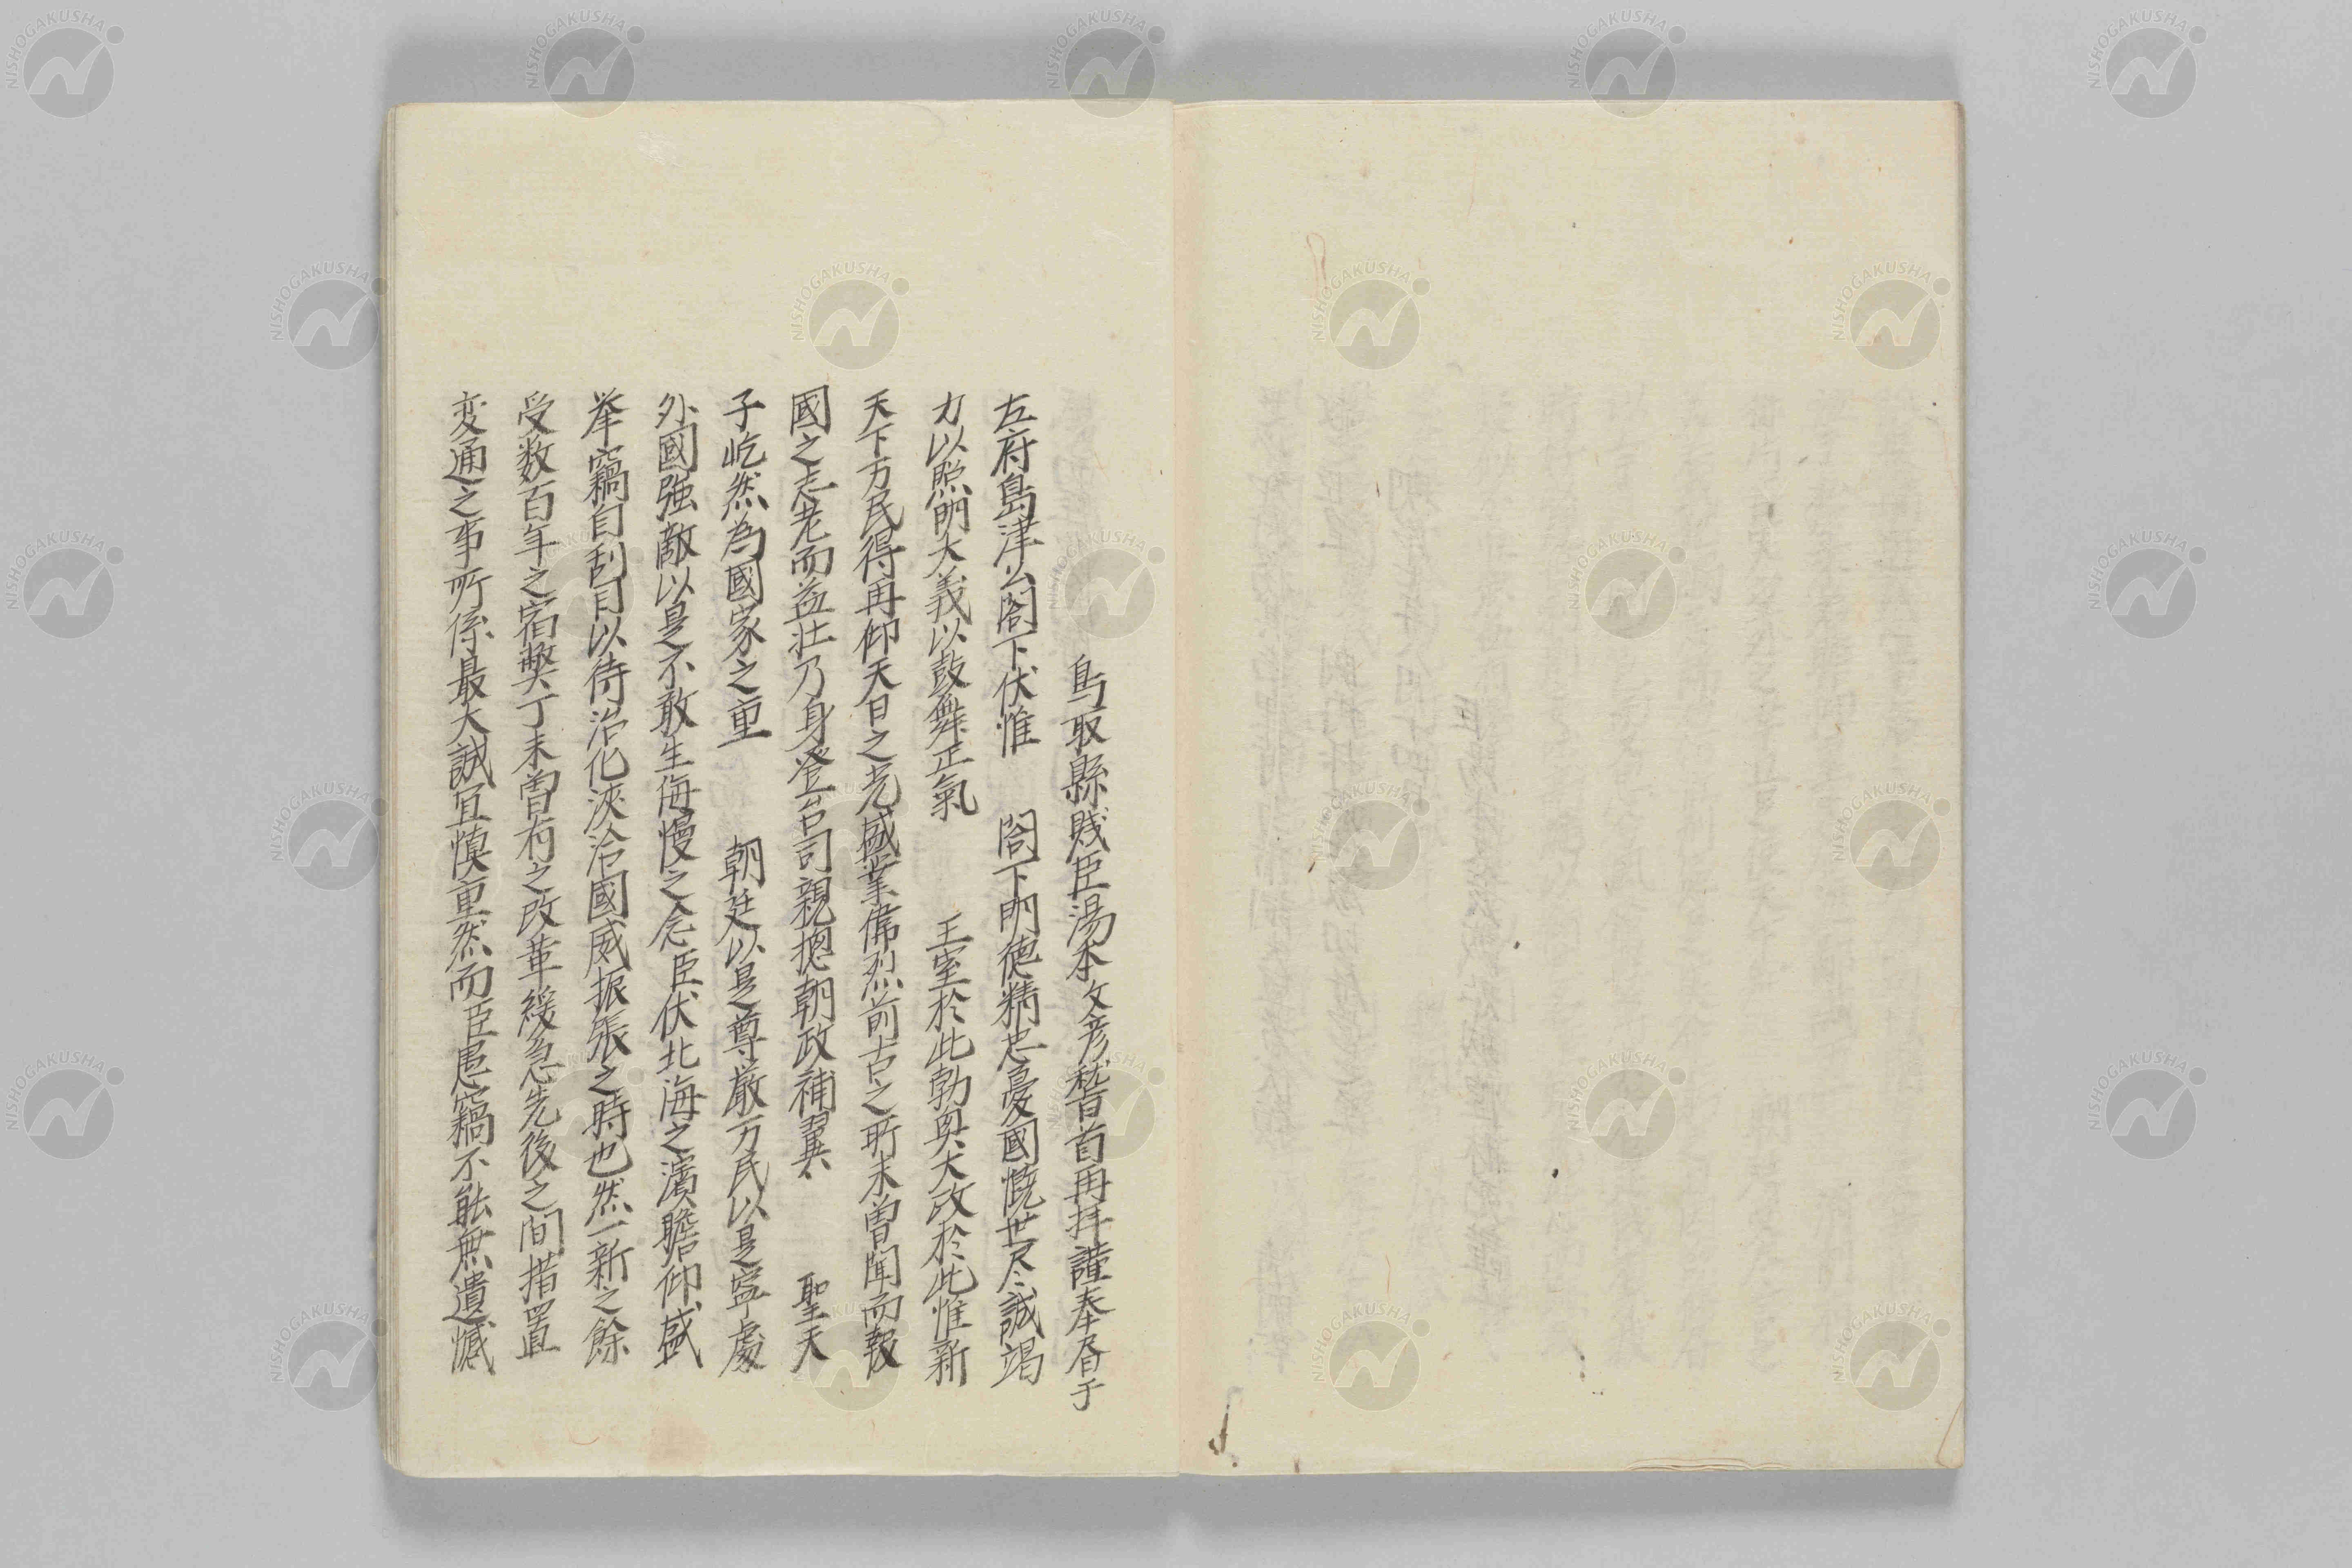 鳥取縣賤臣湯本文彦稽首再拝謹奉啓于
左府島津公閤下伏惟　閤下明德精忠憂國慨世尽誠竭
力以照明大義以鼓舞正氣　王室於此勃興大政於此惟新
天下万民得再仰天日之光盛業偉烈前古之所未曽聞而報
國之志老而益壮乃身登台司親摠朝政補翼　聖天
子屹然為國家之重　朝廷以是尊厳万民以是寧處
外國強敵以是不敢生侮慢之念臣伏北海之濱瞻仰盛
挙竊自刮目以待治化浹洽國威振張之時也然一新之餘
受数百年之宿弊丁未曽有之改革緩急先後之間措置
変通之事所係最大誠宜慎重然而臣愚竊不能無遺憾